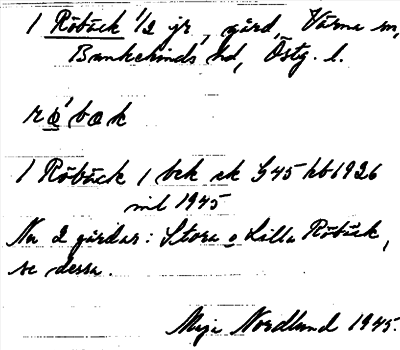 1 Röbäck 1/2 jr, gård, Värna sn,
Bankekinds hd, Östg. l.
rø'bæk
1 Röbäck 1 bek ek G45 hb1926
mtl 1945
Nu 2 gårdar: Stora o Lilla Röbäck,
se dessa.
Maja Nordlund 1945.